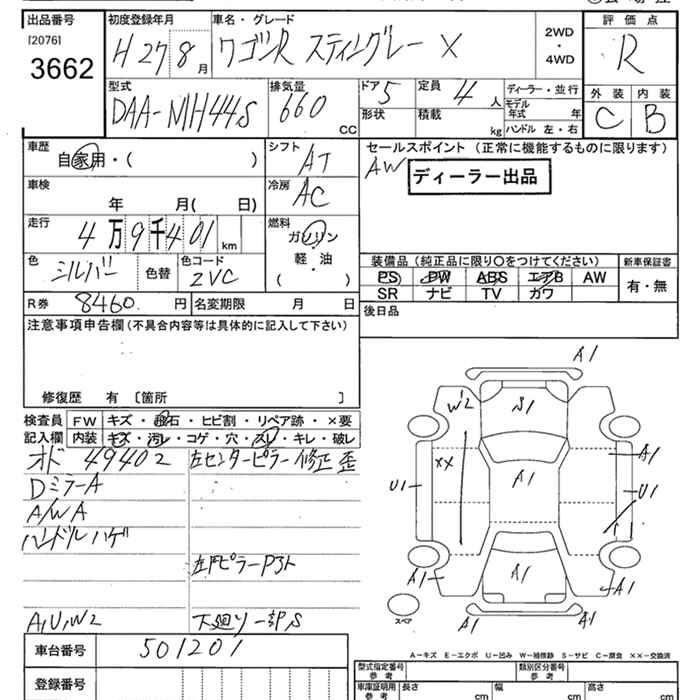 出品番号 初度登録年月 車名・グレード 2WD・4WD 評価点
[2076] 3662
H27 8月 ワゴンR スティングレー X R
型式 排気量 ドア 定員 ディーラー・並行 外装 内装
DAA-MH44S 660CC 5 4人 モデル年式 年 C B
形状 積載 kg ハンドル 左・右
車歴 シフト セールスポイント (正常に機能するものに限ります)
自家用・( ) AT AW ディーラー出品
車検 年 月( 日) 冷房 AC
走行 4万9千401km 燃料 ガソリン・軽油・( )
色 シルバー 色替 色コード Z2VC
装備品 (純正品に限り○をつけてください) 新車保証書
PS PW ABS エアB AW 有・無
SR ナビ TV カワ
R券 8460円 名変期限 月 日 後日品
注意事項申告欄 (不具合内容等は具体的に記入して下さい)
修復歴 有 〔箇所 〕
検査員記入欄 FW キズ・飛石・ヒビ割・リペア跡・×要
内装 キズ・汚レ・コゲ・穴・スレ・キレ・破レ
オド 49402 左センターピラー修正歪
DミラーA
A/W A
ハンドルハゲ
A,U,W2 下廻り一部S
車台番号 501201
登録番号
A1
W2 S1
XX A1 A1
U1 U1
A1 A1 A1
スペア A1 A1
A-キズ E-エクボ U-凹み W-補修跡 S-サビ C-腐食 XX-交換済
型式指定番号 参考 類別区分番号 参考
車庫証明用 参考 長さ cm 幅 cm 高さ cm